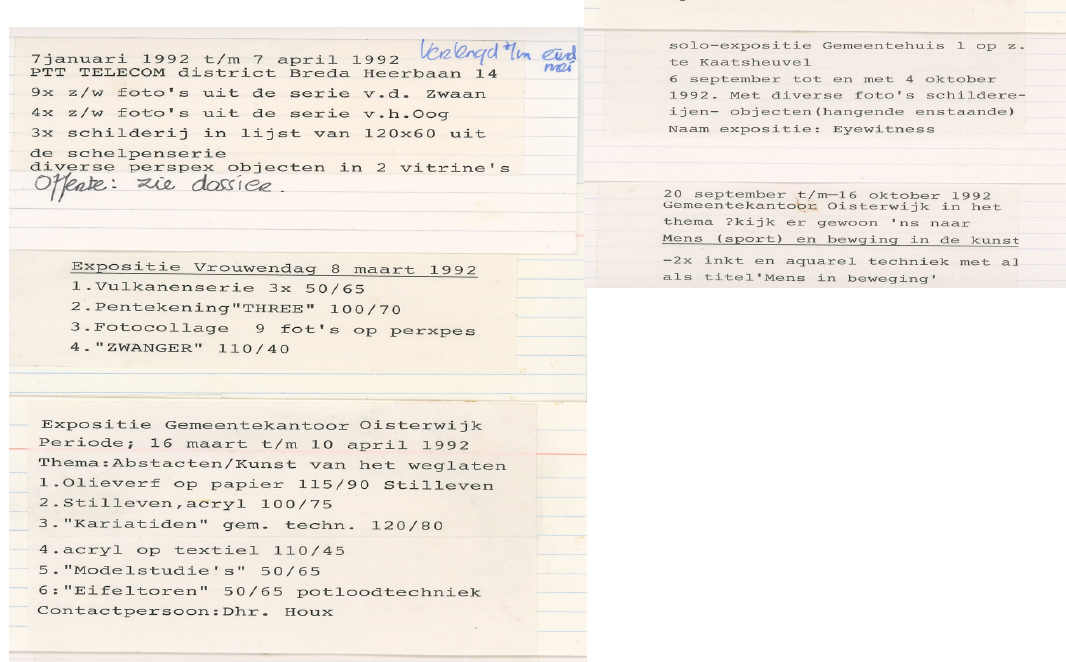 7januari 1992 t/m 7 april 1992 Verlengd t/m eind mei
PTT TELECOM district Breda Heerbaan 14
9x z/w foto's uit de serie v.d. Zwaan
4x z/w foto's uit de serie v.h.Oog
3x schilderij in lijst van 120x60 uit
de schelpenserie
diverse perspex objecten in 2 vitrine's
Offerte: zie dossier.
Expositie Vrouwendag 8 maart 1992
1.Vulkanenserie 3x 50/65
2.Pentekening"THREE" 100/70
3.Fotocollage 9 fot's op perxpes
4."ZWANGER" 110/40
Expositie Gemeentekantoor Oisterwijk
Periode; 16 maart t/m 10 april 1992
Thema:Abstacten/Kunst van het weglaten
1.Olieverf op papier 115/90 Stilleven
2.Stilleven,acryl 100/75
3."Kariatiden" gem. techn. 120/80
4.acryl op textiel 110/45
5."Modelstudie's" 50/65
6:"Eifeltoren" 50/65 potloodtechniek
Contactpersoon:Dhr. Houx
solo-expositie Gemeentehuis l op z.
te Kaatsheuvel
6 september tot en met 4 oktober
1992. Met diverse foto's schildere-
ijen- objecten(hangende enstaande)
Naam expositie: Eyewitness
20 september t/m-16 oktober 1992
Gemeentekantoor Oisterwijk in het
thema ?kijk er gewoon 'ns naar
Mens (sport) en bewging in de kunst
-2x inkt en aquarel techniek met al
als titel'Mens in beweging'